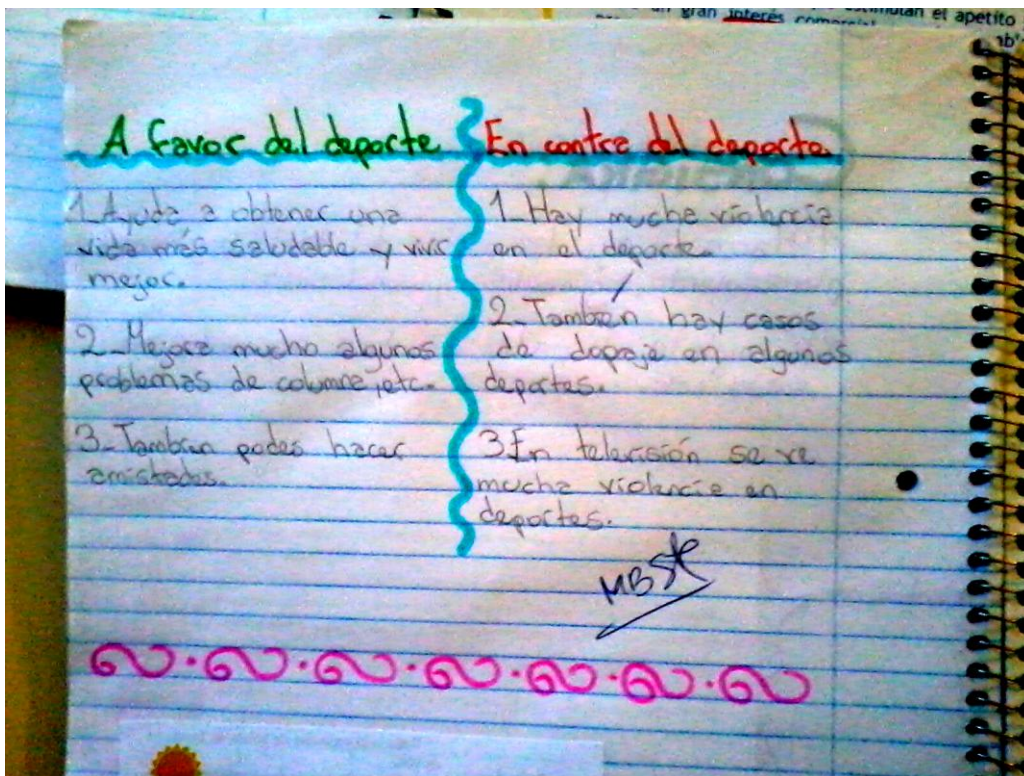 gran interés comercial
estimulan el apetito
A favor del deporte
1_Ayuda a obtener una
vida más saludable y vivir
mejor.
2_Mejora mucho algunos
problemas de columna, etc.
3_Tambien podes hacer
amistades.
En contra del deporte.
1_Hay mucha violencia
en el deporte.
2_También hay casos
de dopaje en algunos
deportes.
3_En televisión se ve
mucha violencia en
deportes.
MB